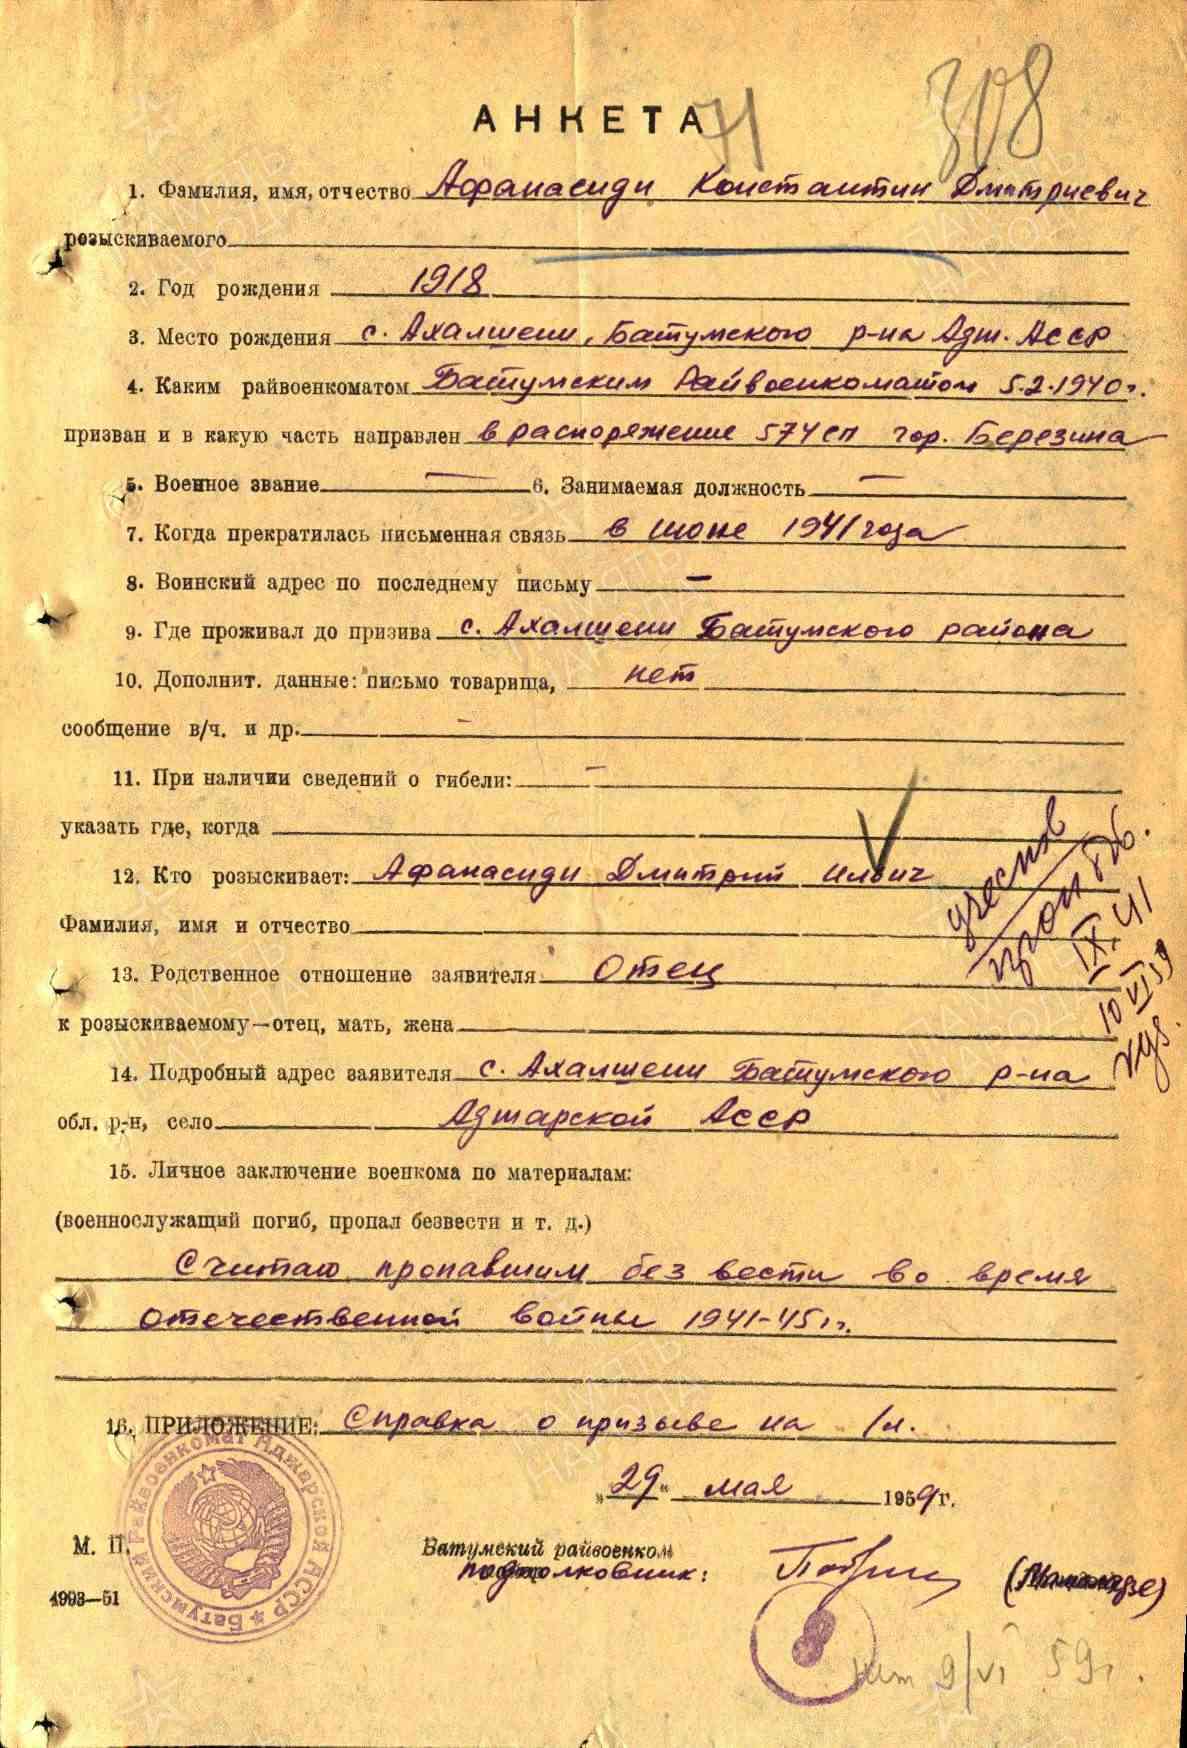 308
АНКЕТА 71
1. Фамилия, имя, отчество Афанасиди Константин Дмитриевич
розыскиваемого
2. Год рождения 1918
3. Место рождения с. Ахалшени, Батумского р-на Адж. АССР
4. Каким райвоенкоматом Батумским Райвоенкоматом 5.2.1940г.
призван и в какую часть направлен в распоряжение 574 сп гор. Березина
5. Военное звание — 6. Занимаемая должность —
7. Когда прекратилась письменная связь в июне 1941 года
8. Воинский адрес по последнему письму —
9. Где проживал до призива с. Ахалшени Батумского района
10. Дополнит. данные: письмо товарища, нет
сообщение в/ч. и др. —
11. При наличии сведений о гибели: —
указать где, когда
12. Кто розыскивает: Афанасиди Дмитрий Ильич
Фамилия, имя и отчество
13. Родственное отношение заявителя Отец
к розыскиваемому—отец, мать, жена
14. Подробный адрес заявителя с. Ахалшени Батумского р-на
обл. р-н, село Аджарской АССР
15. Личное заключение военкома по материалам:
(военнослужащий погиб, пропал безвести и т. д.)
Считаю пропавшим без вести во время
отечественной войны 1941-45 гг.
16. ПРИЛОЖЕНИЕ: Справка о призыве на 1 л.
„29“ мая 1959 г.
М. П.
Батумский райвоенком
подполковник:
4993—51
Батумский Райвоенкомат Аджарской АССР
IX.41
10 VI 59
9/VI 59г.
ПАМЯТЬ НАРОДА